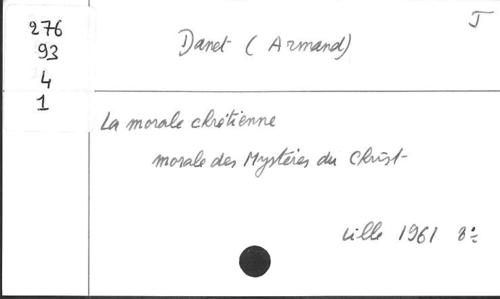 J
276
93
4
1
Danet ( Armand)
La morale chrétienne
morale des Mystères du Christ
Lille 1961 8º